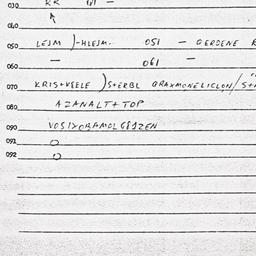 030 KR
040
050 LEJM )-HLEJM. 051 - GERDENE
- 061 -
070 KRIS+VEELE )S+ERBL GRAXMONELICLON/
080 AZANALT+TOP
090 VOSIXORAMOLGEJZEN
091 O
092 O